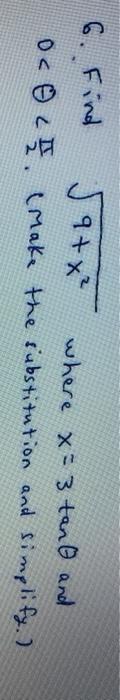 6. Find √9+x² where x = 3 tanθ and
0 < θ < π/2. (Make the substitution and simplify.)